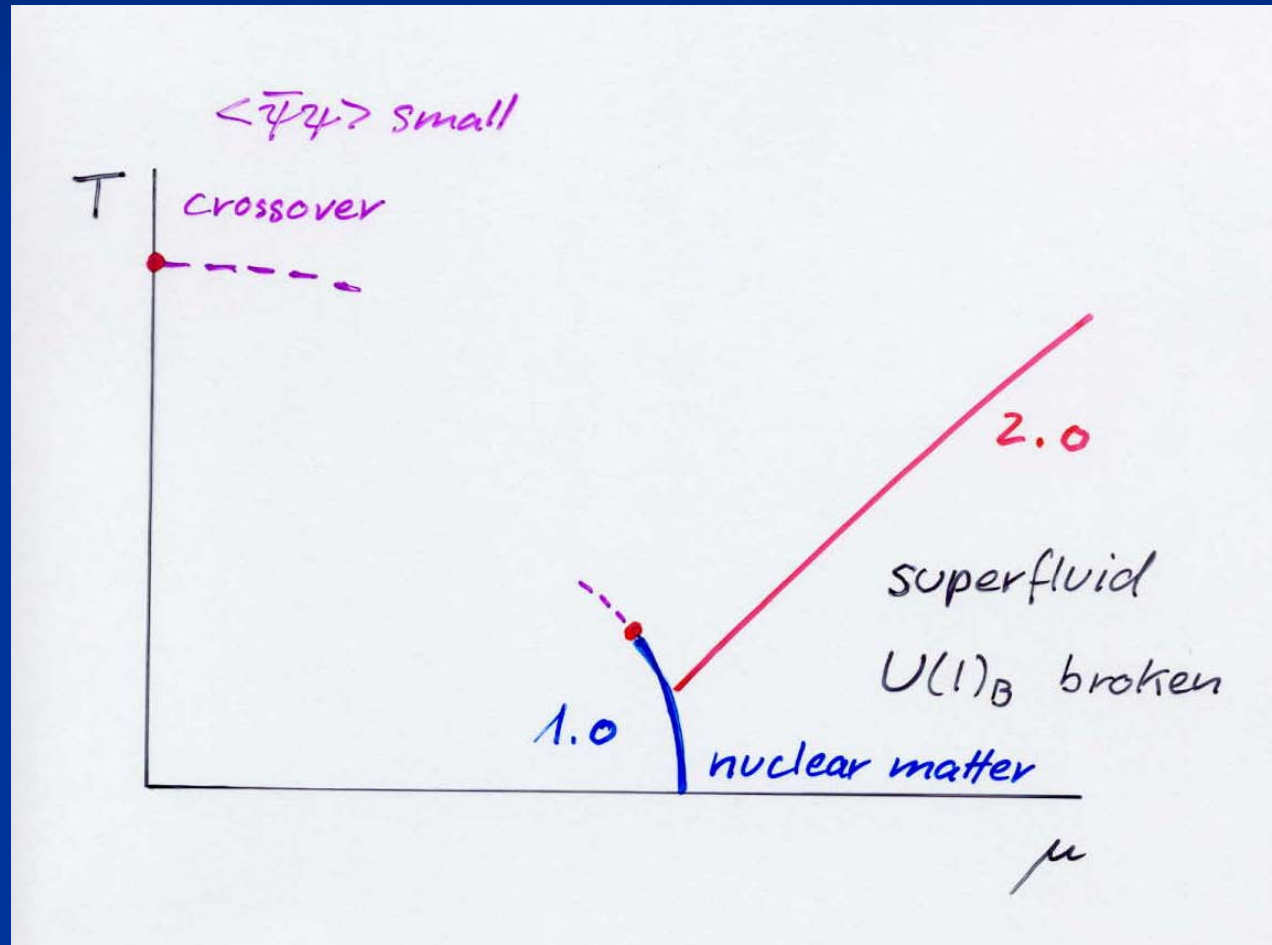 <ψ̄ψ> small
T
crossover
2.0
superfluid
U(1)_B broken
1.0
nuclear matter
μ